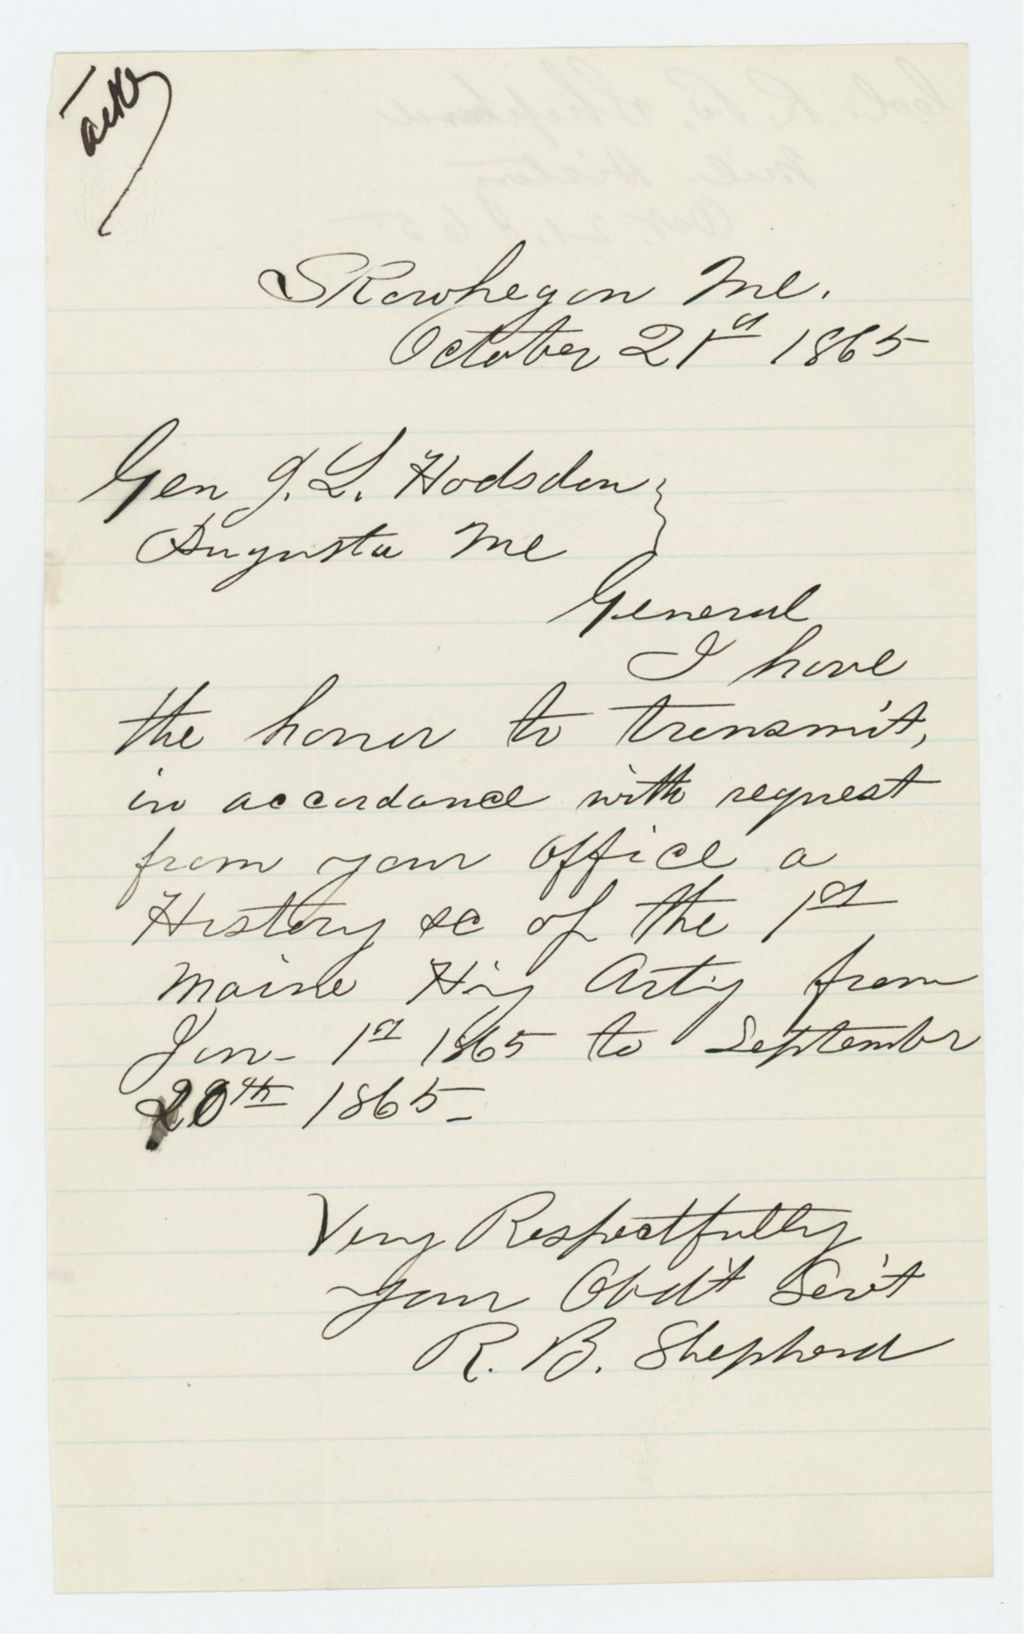 ack
Skowhegan Me.
October 21st 1865
Gen J. L. Hodsdon
Augusta Me
General
I have
the honor to transmit,
in accordance with request
from your office a
History &c of the 1st
Maine Hvy Arty from
Jan- 1st 1865 to September
20th 1865-
Very Respectfully
Your Obd't Serv't
R. B. Shepherd